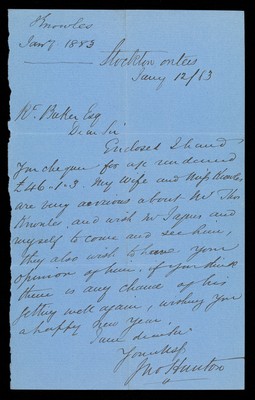 Knowles
Jany 1883
Stockton on tees
Jany 12/83
Wr. Baker Esq
Dear Sir
Enclosed I hand
You cheque for a/c rendered
£46-1-3. My Wife and
are very anxious about Mr Thos
Knowles, and wish Mr James and
myself to come and see him,
they also wish to have your
opinion of him, if you think
there is any chance of his
getting well again, wishing you
a happy New Year.
I am dear Sir
Yours
Jno Hunton